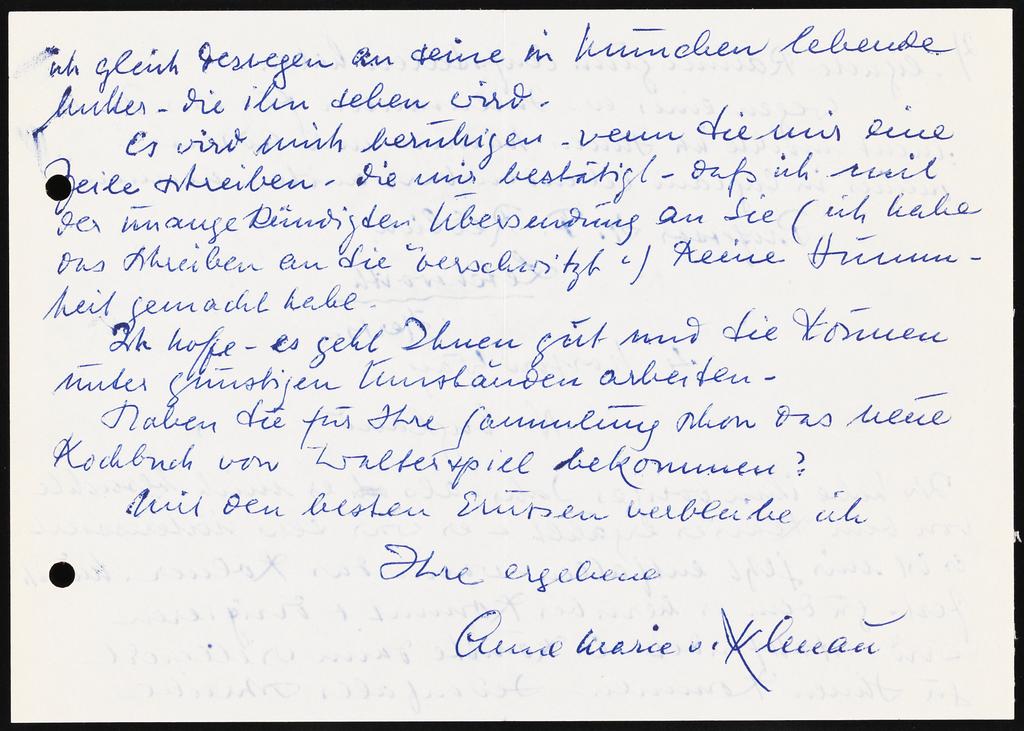 ich gleich deswegen an seine in München lebende
Mutter - die ihn sehen wird.
Es wird mich beruhigen - wenn Sie mir eine
Zeile schreiben - die mir bestätigt - daß ich mit
der unangekündigten Übersendung an Sie (ich habe
das Schreiben an Sie "verschwitzt"!) keine Dumm-
heit gemacht habe.
Ich hoffe - es geht Ihnen gut und Sie können
unter günstigen Umständen arbeiten -
Haben Sie für Ihre Sammlung schon das neue
Kochbuch von Walterspiel bekommen?
Mit den besten Grüssen verbleibe ich
Ihre ergebene
Anne Marie v. Klenau